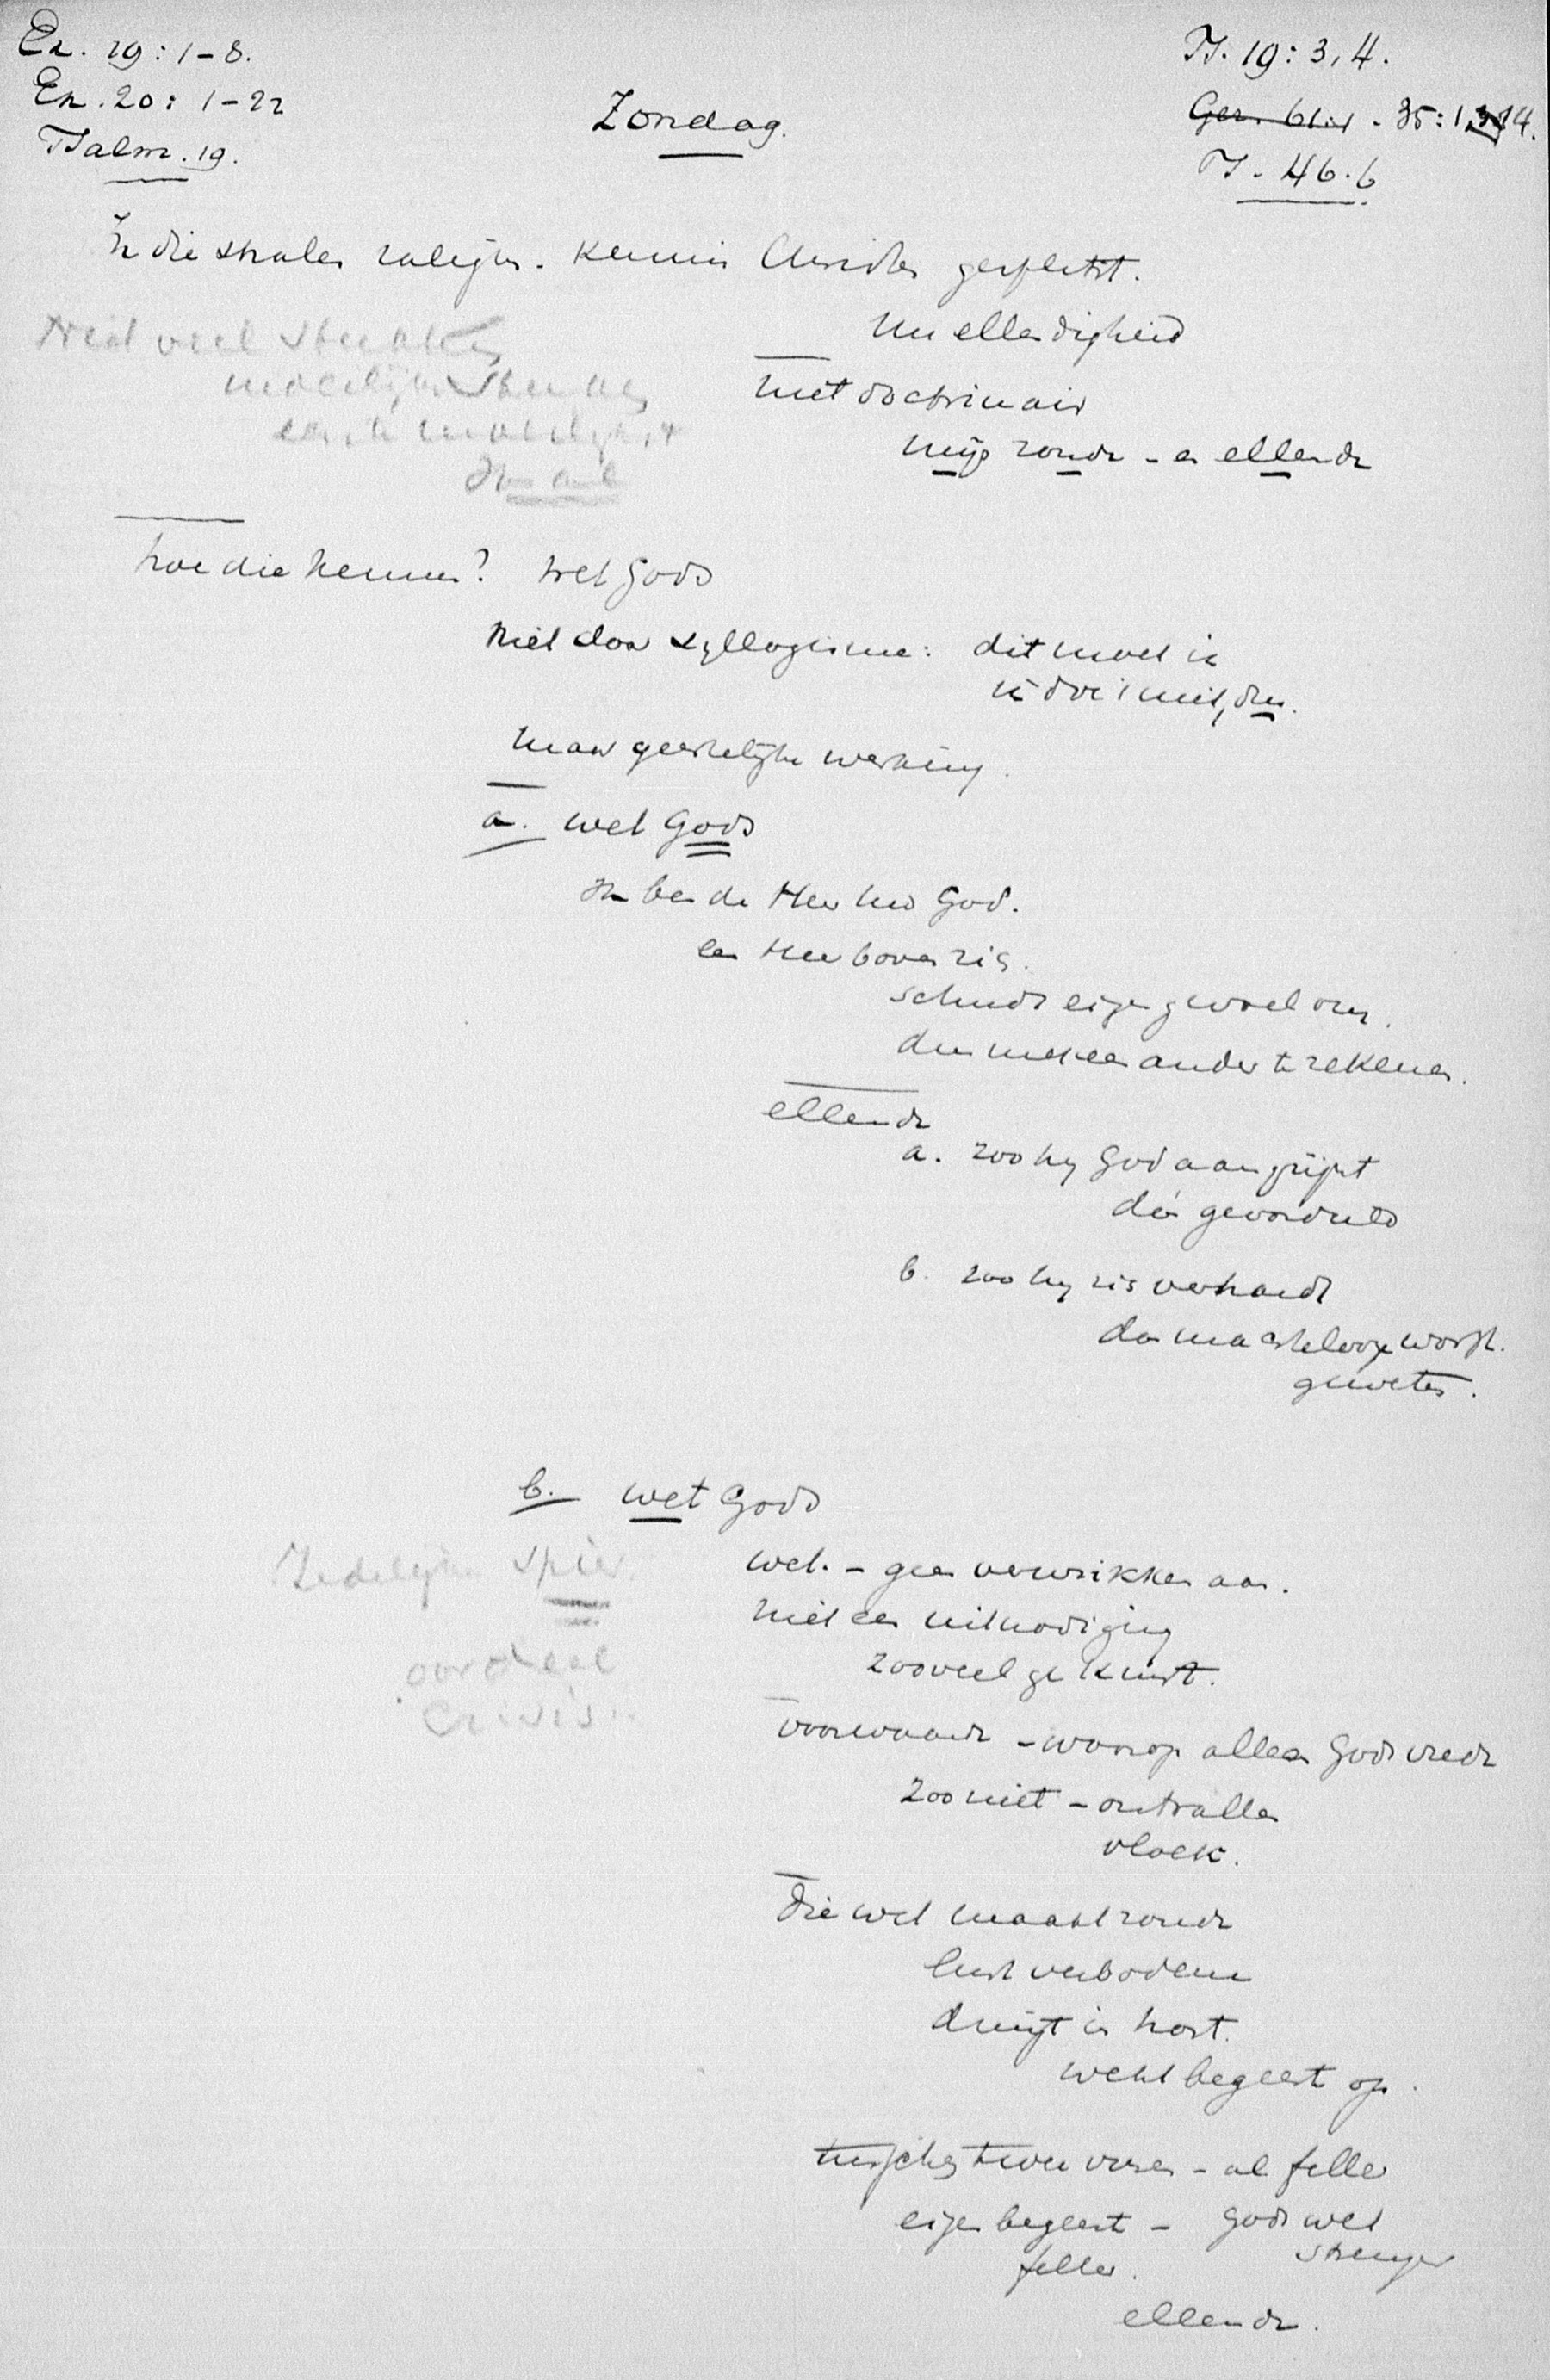 Ex. 19 : 1-8.
Ex. 20 : 1-22
Psalm. 19.
Zondag.
Ps. 19 : 3, 4.
Gez. 61:1 - 35 : 1, 14.
Ps. 46. 6
In die stralen zaligh. kennis Christen gesplitst.
Uw ellendigheid
niet doctrinair
mijn zonde - en ellende
hoe die kennen? wet Gods
Niet door syllogisme : dit moet ik
ik doe 't niet, dus.
Maar geestelijke werking.
a. wet Gods
Ik ben de Heer uw God.
een Heer boven zich.
schudt eigen gevoel om.
dus met een ander te rekenen.
ellende
a. zoo hij God aangrijpt
dan geoordeeld
b. zoo hij zich verhardt
dan machteloze worst.
geweten.
b. wet Gods
Zedelijke Spier.
oordeel
Crisis.
wet. - geen verwrikken aan.
Niet een uitnodiging
zooveel ge kunt.
Voorwaarde - waarop alleen Gods vrede
Zoo niet - ontvallen
vloek.
Die wet maakt zonde
lust verbodene
dringt in hart.
wekt begeert op.
tusschen twee vuren - al feller
eigen begeert - Gods wet
feller. strenger
ellende.